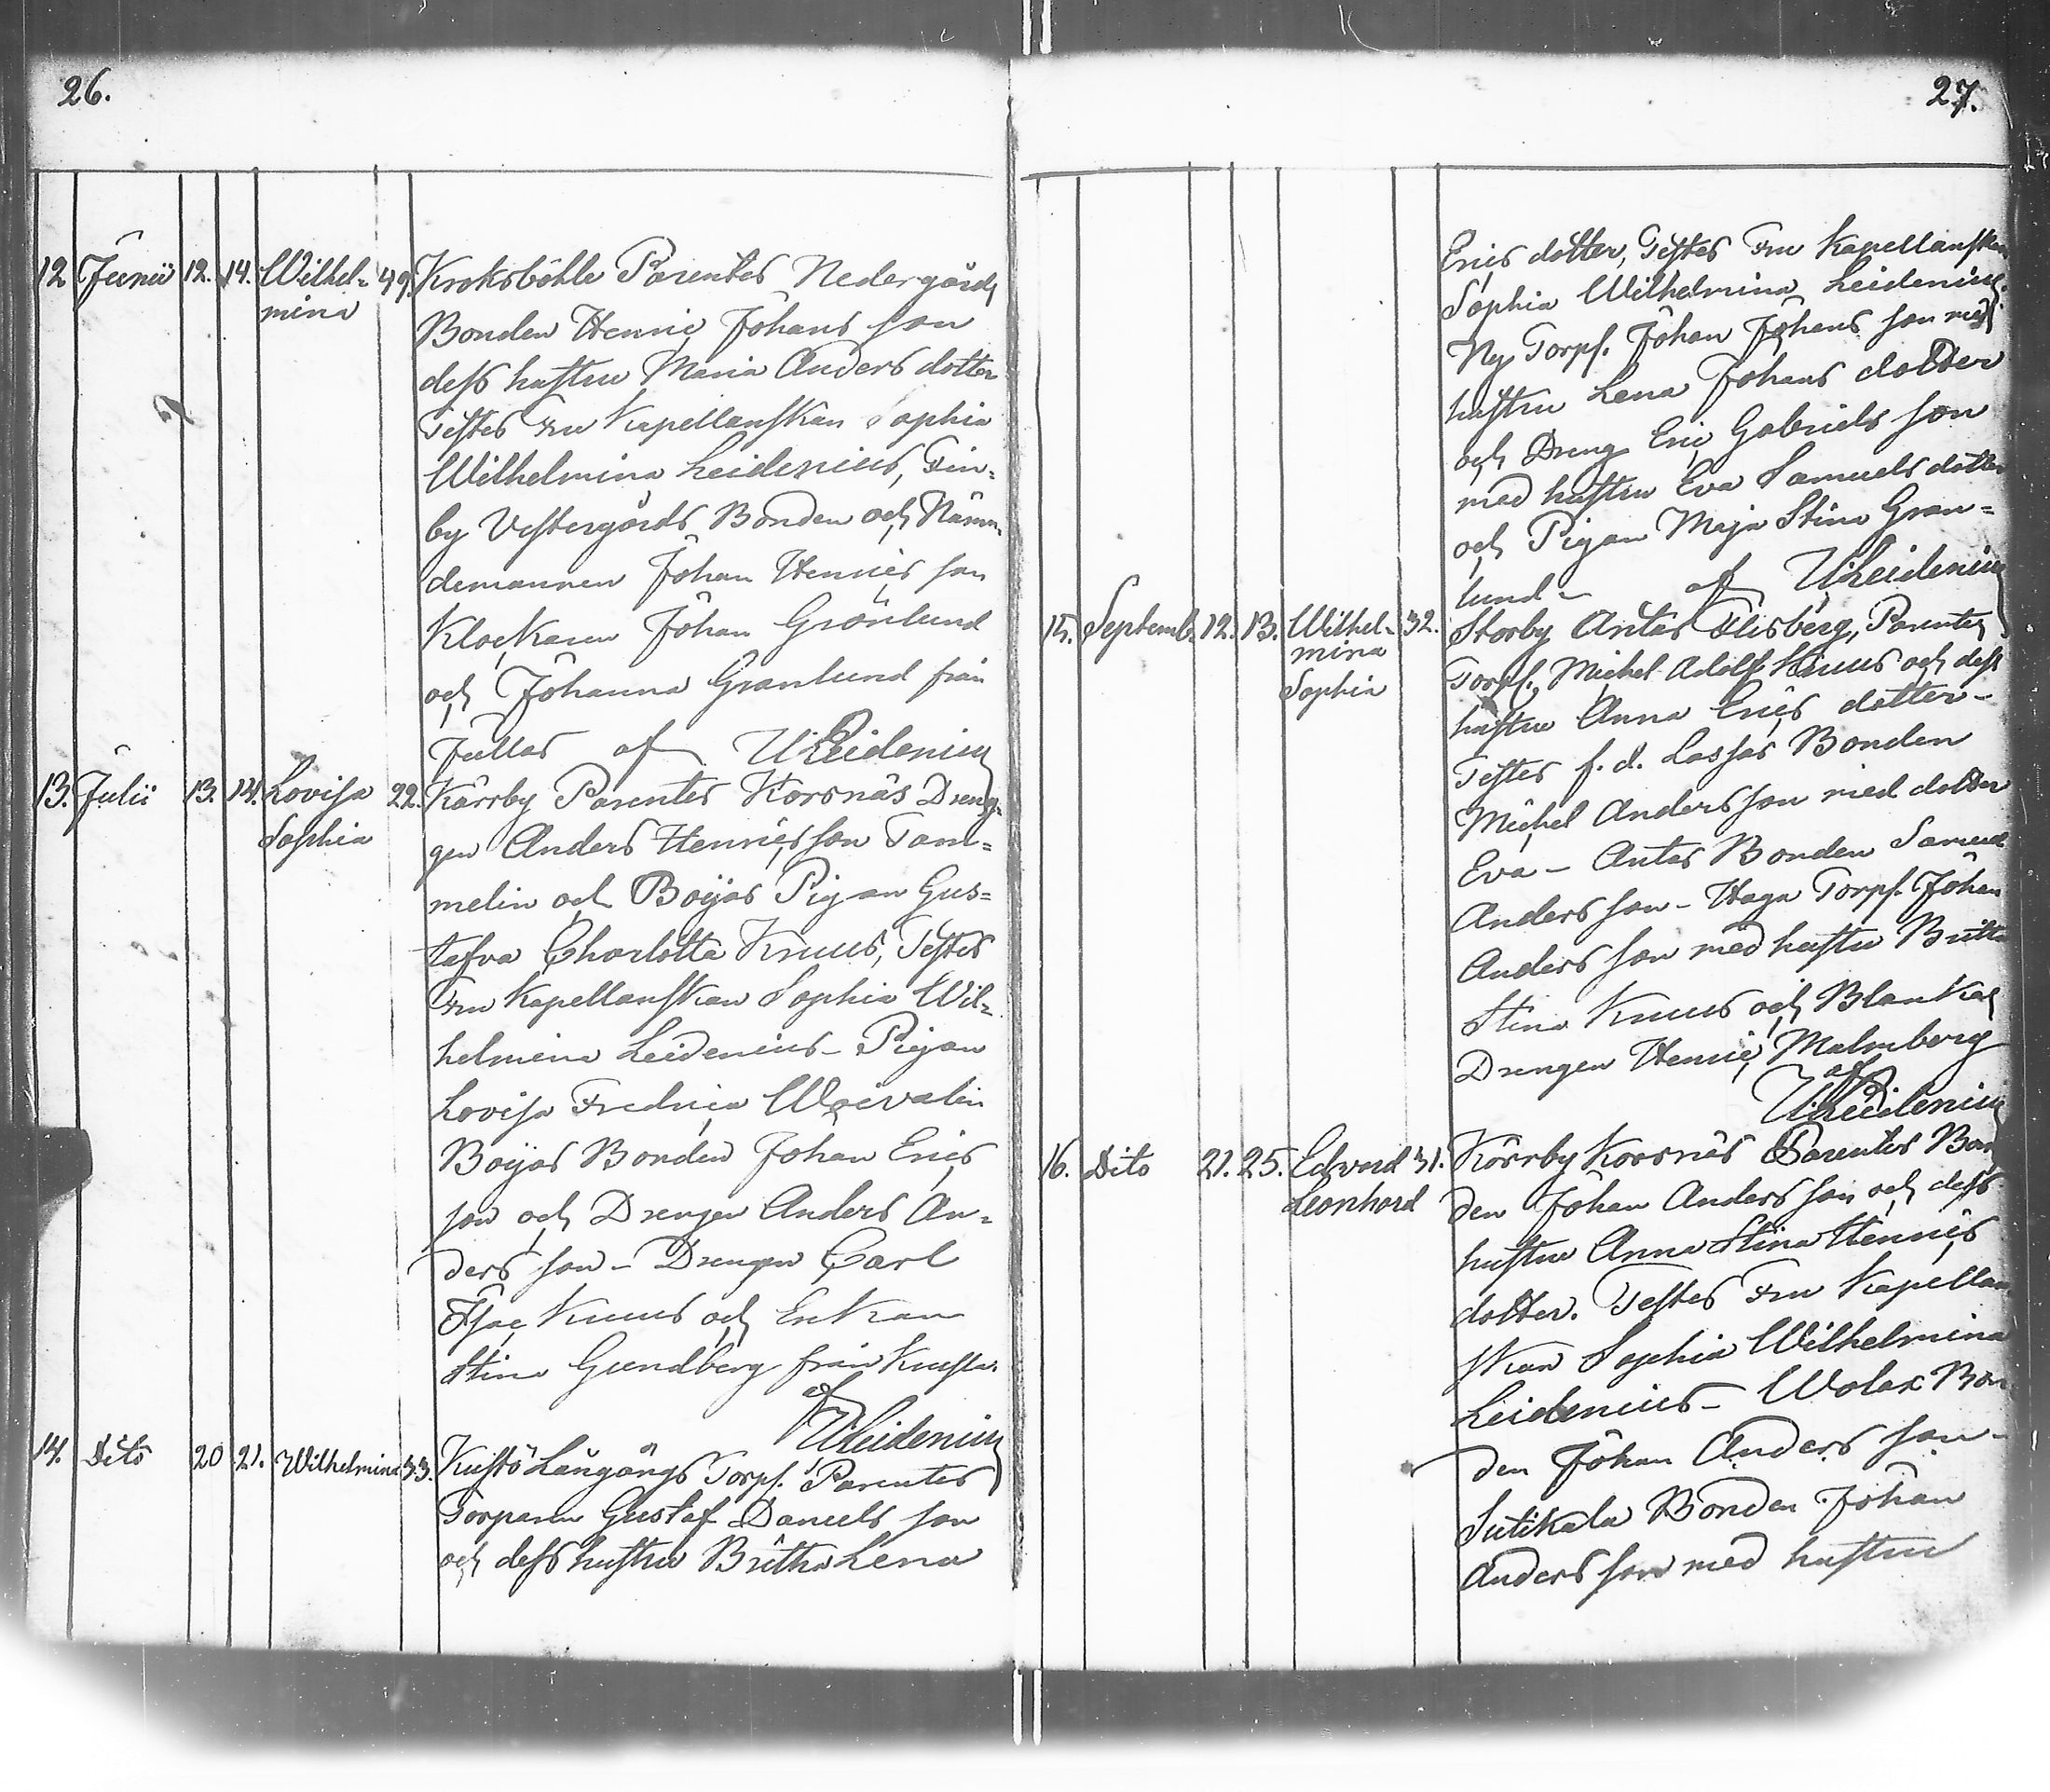 26.
12 Junii 12. 14. Wilhel= 49. Kroksböhle Parentes Nedergårds
mina Bonden Henric Johans son
dess hustru Maria Anders dotter
Testes Fru Kapellanskan Sophia
Wilhelmina Leidenius, Fin=
by Vestergårds Bonden och Näm̅=
demannen Johan Henrics son
Klockaren Johan Grönlund
och Johanna Granlund från
Jullas af U Leidenius
13. Julii 13. 14. Lovisa 22. Kärrby Parentes Korsnäs Dreng=
Sophia gen Anders Henricsson Tam=
melin och Böijas Pigan Gus=
tafva Charlotta Knuus, Testes
Fru Kapellanskan Sophia Wil=
helmina Leidenius – Pigan
Lovisa Fredrica Waivalin
Böijas Bonden Johan Erics
son och Drengen Anders An=
ders son – Drengen Carl
Isac Knuus och Enkan
Stina Gundberg från
af
U Leidenius
14. Dito 20 21. Wilhelmina 33. Kustö Långängs Torpf. Parentes
Torparen Gustaf Daniels son
och dess hustru Britha Lena
27.
Erics dotter, Testes Fru Kapellanskan
Sophia Wilhelmina Leidenius.
Ny Torpf. Johan Johans son med
hustru Lena Johans dotter
och Dreng Eric Gabriels son
med hustru Eva Samuels dotter
och Pigan Maja Stina Gran=
lund – af U Leidenius
15. Septemb. 12. 13. Wilhel= 32. Storby Antas Flisberg, Parentes
mina Torpf. Michel Adolf Knuus och dess
Sophia hustru Anna Erics dotter –
Testes f. d. Lassas Bonden
Michel Anders son med dotter
Eva – Antas Bonden Samuel
Anders son – Haga Torpf. Johan
Anders son med hustru Britta
Stina Knuus och Blankas
Drengen Henric Malmberg
af
U Leidenius
16. Dito 21. 25. Edvard 31. Kärrby Korsnäs Parentes Bon
Leonhard den Johan Anders son och dess
hustru Anna Stina Henrics
dotter. Testes Fru Kapellan
skan Sophia Wilhelmina
Leidenius – Wolax Bon
den Johan Anders son –
Sutikala Bonden Johan
Anders son med hustru